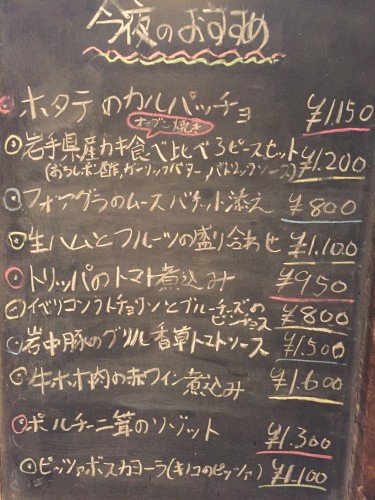 今夜のおすすめ
ホタテのカルパッチョ ¥1,150
オーブン焼き
岩手県産カキ食べ比べ3ピースセット ¥1,200
(おろしポン酢,ガーリックバター,バドリックソース)
フォアグラのムース バケット添え ¥800
生ハムとフルーツの盛り合わせ ¥1,100
トリッパのトマト煮込み ¥950
イベリコソフトチョリソとブルーチーズの
ピンチョス ¥800
岩中豚のグリル 香草トマトソース ¥1,500
牛ホホ肉の赤ワイン煮込み ¥1,600
ポルチーニ茸のリゾット ¥1,300
ピッツァボスカヨーラ(キノコのピッツァ) ¥1,100